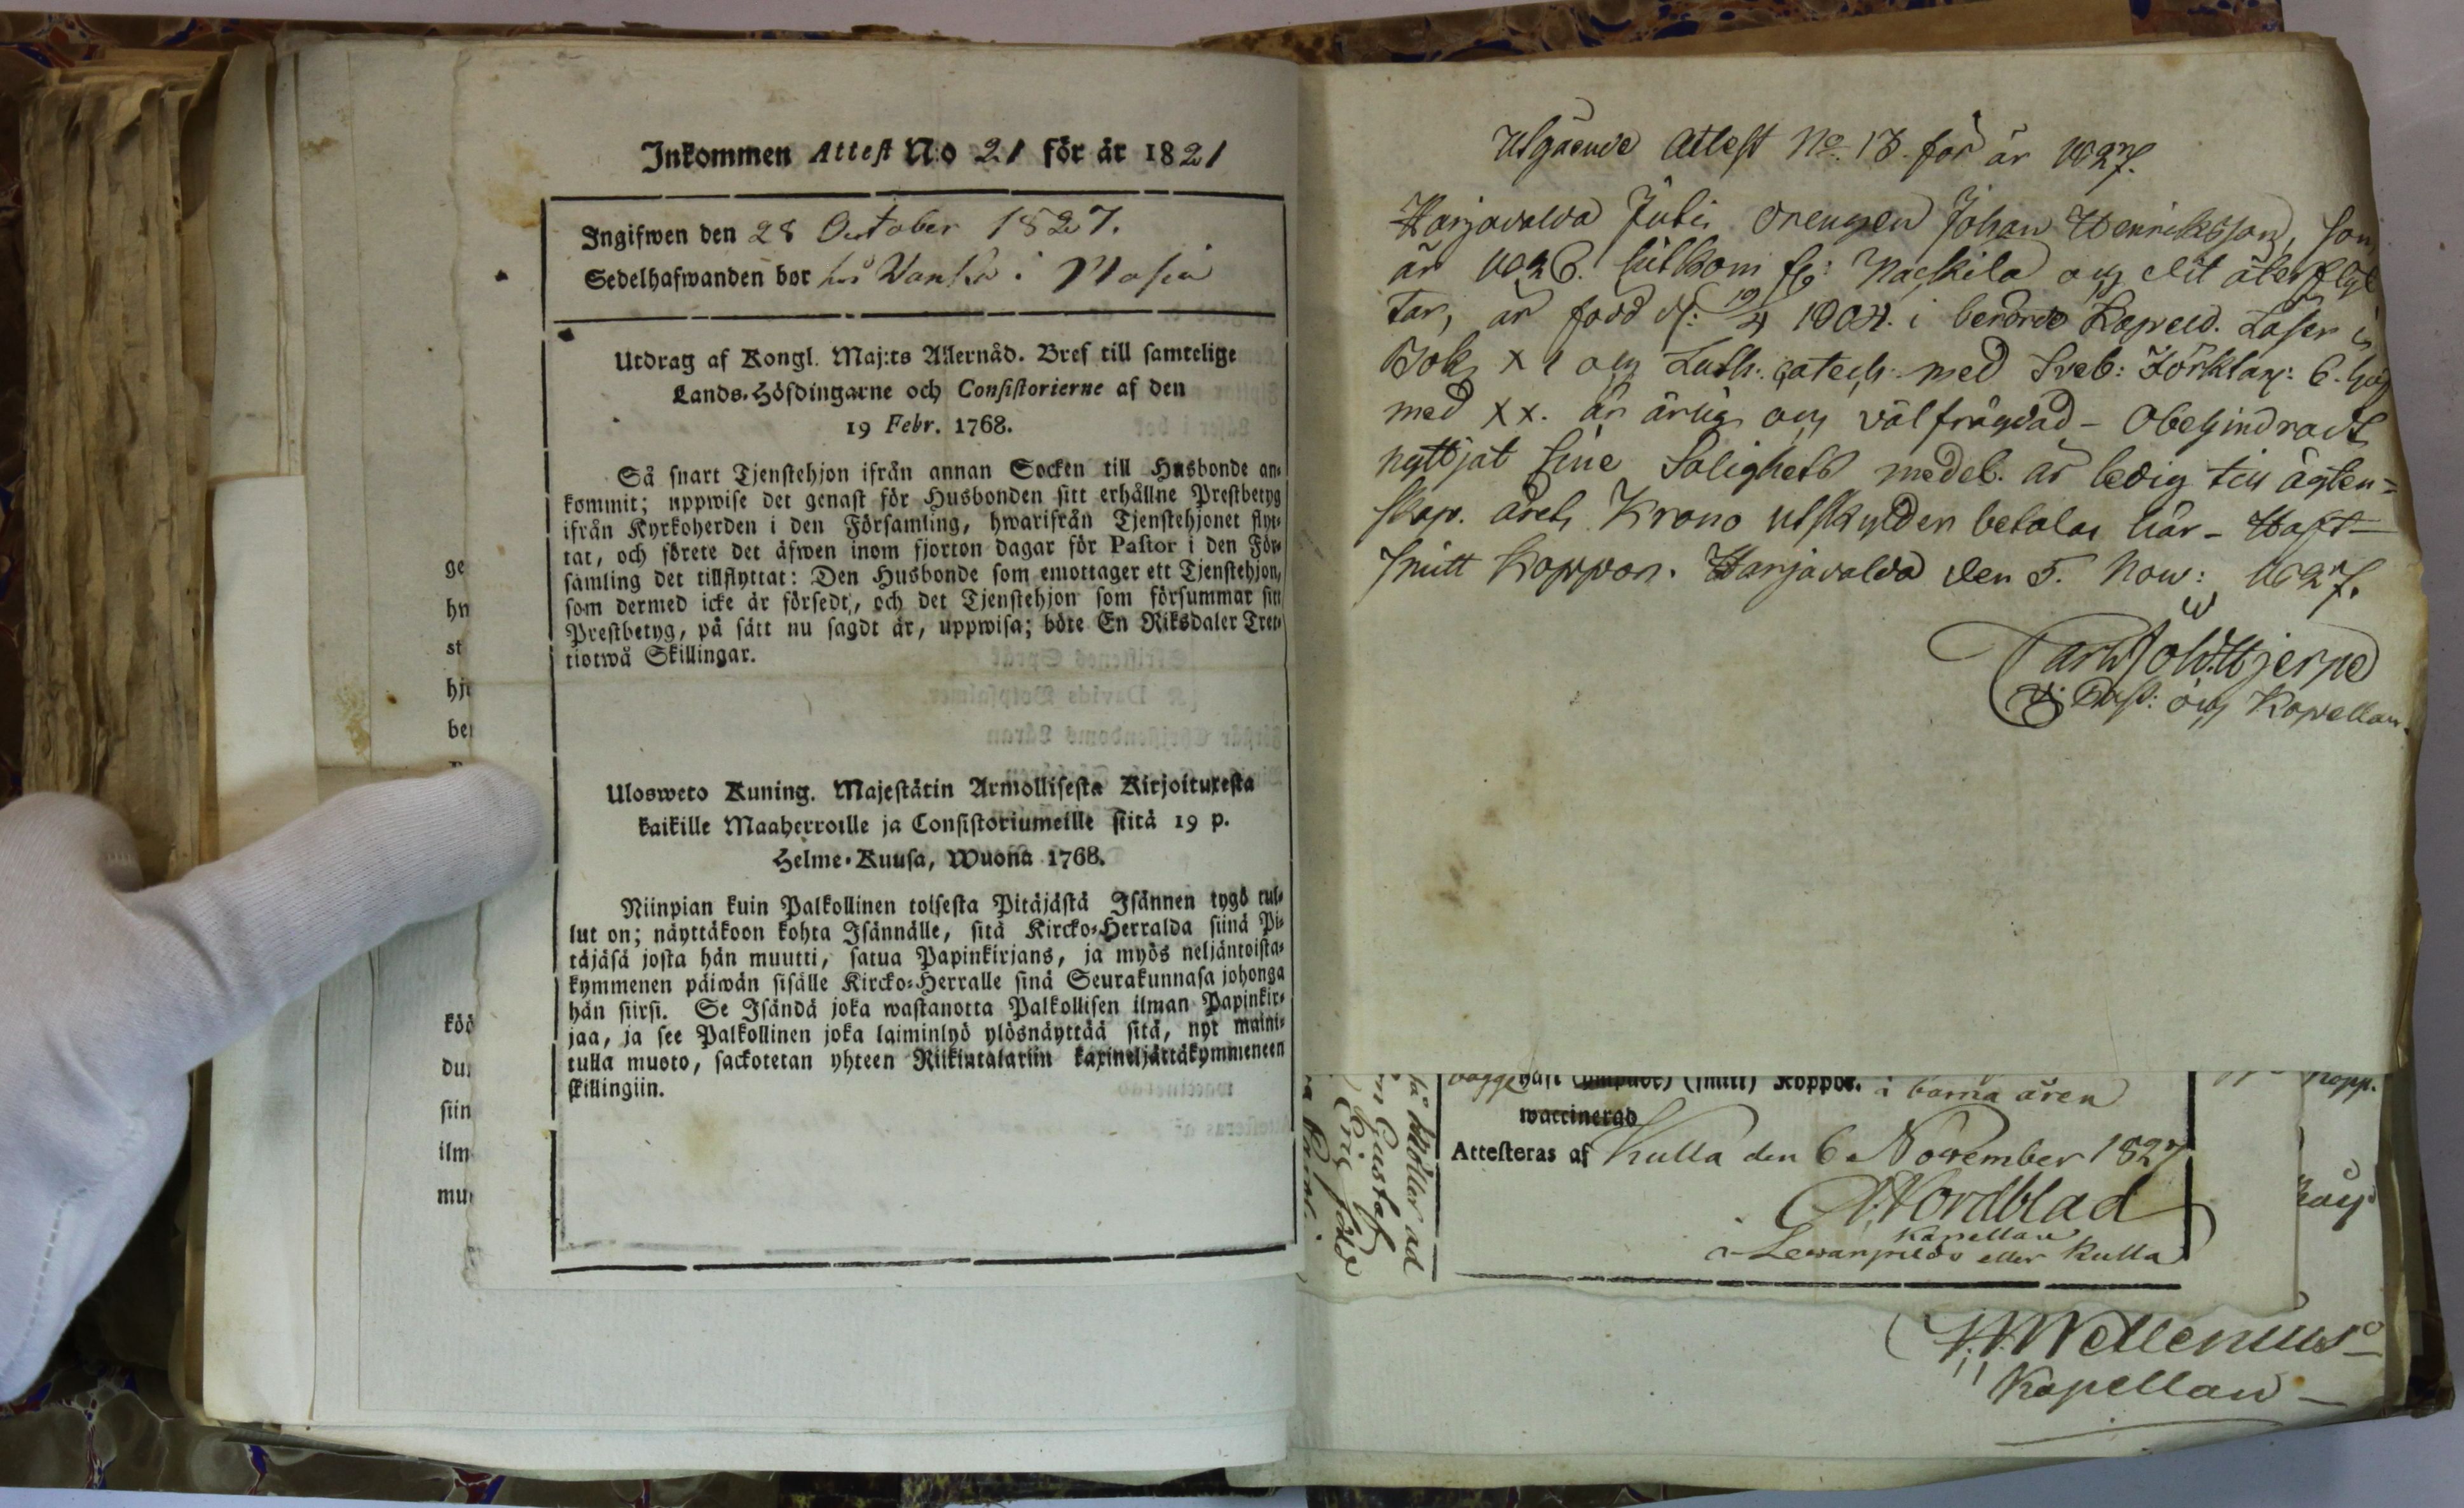 Inkommen Attest No 21 för år 1821
Ingifwen den 28 October 1827.
Sedelhafwanden bor hos i
Utdrag af Kongl. Maj:ts Allernåd. Bref till samtelige
Lands-Höfdingarne och Consistorierne af den
19 Febr. 1768.
Så snart Tjenstehjon ifrån annan Socken till Husbonde an-
kommit; uppwise det genast för Husbonden sitt erhållne Prestbetyg
ifrån Kyrkoherden i den Församling, hwarifrån Tjenstehjonet flyt-
tat, och förete det äfwen inom fjorton dagar för Pastor i den För-
samling det tillflyttat: Den Husbonde som emottager ett Tjenstehjon,
som dermed icke är försedt, och det Tjenstehjon som försummar sitt
Prestbetyg, på sätt nu sagdt är, uppwisa; böte En Riksdaler Tret-
tiotwå Skillingar.
Ulosweto Kuning. Majestätin Armollisesta Kirjoituxesta
kaikille Maaherroille ja Consistoriumeille siitä 19 p.
Helme-Kuusa, Wuona 1768.
Niinpian kuin Palkollinen toisesta Pitäjästä Isännen tygö tul-
lut on; näyttäkoon kohta Isännälle, sitä Kircko-Herralda siinä Pi-
täjäsä josta hän muutti, satua Papinkirjans, ja myös neljäntoista-
kymmenen päiwän sisälle Kircko-Herralle sinä Seurakunnasa johonga
hän siirsi. Se Isändä joka wastanotta Palkollisen ilman Papinkir-
jaa, ja see Palkollinen joka laiminlyö ylösnäyttää sitä, nyt maini-
tulla muoto, sackotetan yhteen Riikintalariin kaxineljättäkymmeneen
skillingiin.
ge
hn
st
hje
be
köö
du
siin
ilm
mu
Utgående Attest No. 18. för år 1827.
Harjavalda Juti drengen Johan Henriksson, som
år 1826. hitkom fr: Nackila och dit återflyt
tar, är född d: 19/4 1804. i berörde Kapell. Läser i
Bok x 1 och Luth: catech: med Sveb: Förklar: 6.
med xx. är ärlig och välfrägdad - Obehindradt
nyttjat sine Salighets medel. är ledig till ägten=
skap. årets Krono utskylder betalas här - Haft
smitt Koppor. Harjavalda den 5. Nov: 1827.
Hjerpe
V: Past: och Kapellan.
haft (smitt) Koppor. i barna åren
waccinerad
Attesteras af Kulla den 6 November 1827
Nordblad
Kapellan
eller Kulla
Kopp.
Gustaf
Wellenius
Kapellan